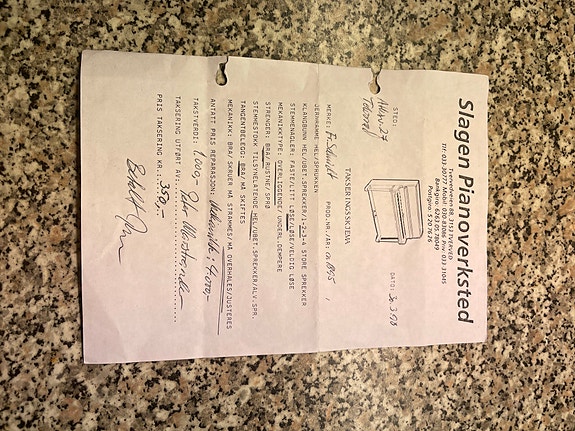 Slagen Pianoverksted
Tverrveien 88, 3153 TVERVED
Tlf: 033 30777 Mobil: 030 83086 Priv: 033 31045
Bankgiro: 6263.05.78049
Postgiro: 5 20 76 76
STED: DATO: 30.3.
27
TAKSERINGSSKJEMA
MERKE: Fr. Schmidt PROD.NR./ÅR: ca 1895 /
JERNRAMME HEL/SPRUKKEN
KLANGBUNN HEL/UBET.SPREKKER/1-2-3-4 STORE SPREKKER
STEMMENAGLER: FAST/LITT LØSE/LØSE/VELDIG LØSE
MEKANIKKTYPE: OVERLIGGENDE/ UNDERL.DEMPERE
STRENGER: BRA/RUSTNE/SPRØ
STEMMESTOKK TILSYNELATENDE HEL/UBET.SPREKKER/ALV.SPR.
TANGENTBELEGG: BRA/MÅ SKIFTES
MEKANIKK: BRA/ SKRUER MÅ STRAMMES/MÅ OVERHALES/JUSTERES
ANTATT PRIS REPARASJON: 4000,-
TAKSTVERDI: 1000,-
TAKSERING UTFØRT AV:
PRIS TAKSERING KR.: 350,-